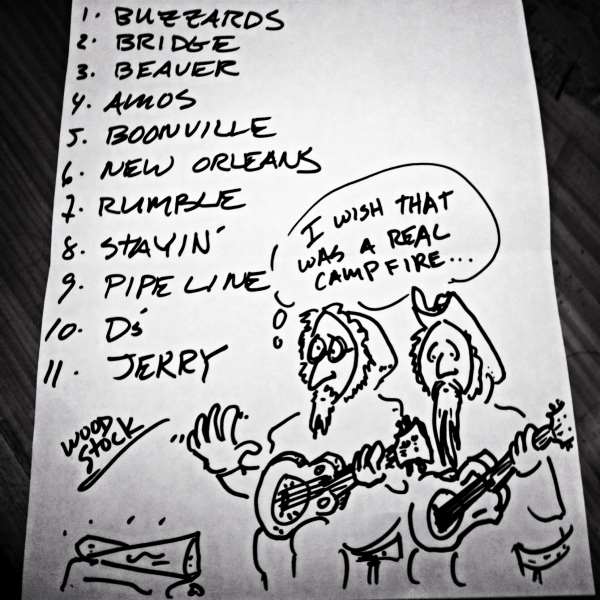 1. BUZZARDS
2. BRIDGE
3. BEAVER
4. AMOS
5. BOONVILLE
6. NEW ORLEANS
7. RUMBLE
8. STAYIN'
9. PIPELINE
10. D's
11. JERRY
I WISH THAT
WAS A REAL
CAMPFIRE...
WOOD
STOCK